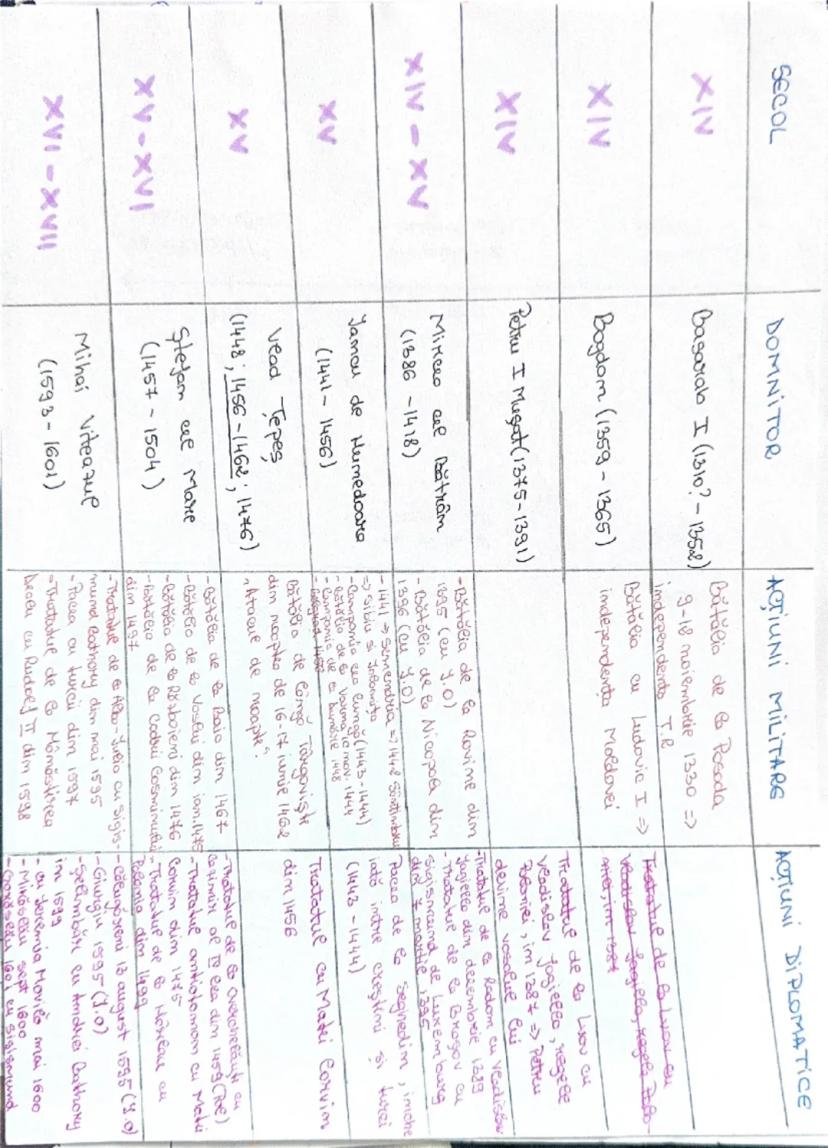 SECOL
DOMNITOR
ACȚIUNI MILITARE
ACȚIUNI DIPLOMATICE
XIV
Basarab I (1310? - 1352)
Bătălia de la Posada
9-12 noiembrie 1330 =>
independența Ț.R
XIV
Bogdan (1359 - 1365)
Bătălia cu Ludovic I =>
independența Moldovei
Tratatul de la Lvov cu
Vladislav Jagiello, regele Polo-
niei, în 1387
XIV
Petru I Mușat (1375-1391)
Tratatul de la Lvov cu
Vladislav Jagiello, regele
Poloniei, în 1387 => Petru
devine vasalul lui
XIV - XV
Mircea cel Bătrân
(1386 - 1418)
- Bătălia de la Rovine din
1395 (cu I.O)
- Bătălia de la Nicopole din
1396 (cu I.O)
- Tratatul de la Radom cu Vladislav
Jagiello din decembrie 1389
- Tratatul de la Brașov cu
Sigismund de Luxemburg
din 7 martie 1395
XV
Iancu de Hunedoara
(1441 - 1456)
- 1441 => Semendria => 1442 Sântimbru
=> Sibiu și Ialomița
- Campania cea lungă (1443-1444)
- Bătălia de la Varna 10 nov. 1444
- Campania de la Dunăre 1448
- Belgrad 1456
Pacea de la Seghedin, înche
iată între creștini și turci
(1443 - 1444)
XV
Vlad Țepeș
(1448; 1456-1462; 1476)
Bătălia de lângă Târgoviște
din noaptea de 16-17 iunie 1462
"Atacul de noapte"
Tratatul cu Matei Corvin
din 1456
XV - XVI
Ștefan cel Mare
(1457 - 1504)
- Bătălia de la Baia din 1467
- Bătălia de la Vaslui din ian. 1475
- Bătălia de la Războieni din 1476
- Bătălia de la Codrii Cosminului
din 1497
- Tratatul de la Overchelăuți cu
Cazimir al IV lea din 1459 (Pol)
- Tratatul antiotoman cu Matei
Corvin din 1475
- Tratatul de la Hârlău cu
Polonia din 1499
XVI - XVII
Mihai Viteazul
(1593 - 1601)
- Tratatul de la Alba-Iulia cu Sigis-
mund Bathory din mai 1595
- Pacea cu turcii din 1597
- Tratatul de la Mănăstirea
Dealu cu Rudolf II din 1598
- Călugăreni 13 august 1595 (I.O)
- Giurgiu 1595 (I.O)
- Șelimbăr cu Andrei Bathory
în 1599
- cu Ieremia Movilă mai 1600
- Mirăslău sept 1600
- Guruslău 1601 cu Sigismund